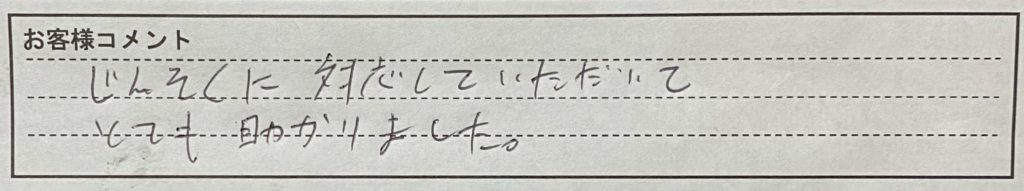 お客様コメント
じんそくに 対応していただいて
とても 助かりました。